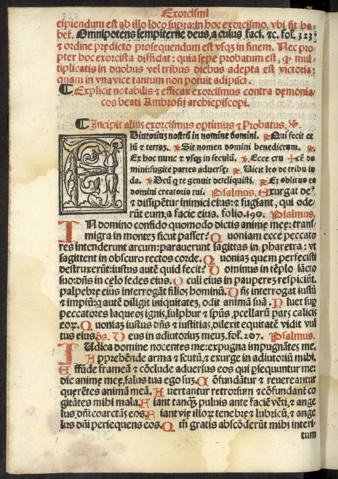 Exorcismi
cipiendum est ab illo loco supra: in hoc exorcismo, vbi sic ha
bet. Omnipotens sempiterne deus, a cuius faci. ꝛc. fol. 323
⁊ ordine predicto prosequendum est vsqꝫ in finem. Nec pro
pter hoc exorcista diffidat: quia sepe probatum est, ꝙ mul
tiplicatis in duobus vel tribus diebus adepta est victoria:
quam in vna vice tantum non potuit adipisci.
Explicit notabilis ⁊ efficax exorcismus contra demonia
cos beati Ambrosij archiepiscopi.
Incipit alius exorcismus optimus ⁊ Probatus.
Diutorium nostrū in nomine domini. Qui fecit ce
lū ⁊ terrā. Sit nomen domini benedictum.
Ex hoc nunc ⁊ vsqꝫ in seculū. Ecce cru ✠ cē do
mini: fugite partes aduerse. Uicit leo de tribu iu
da. Deū q̄ te genuit dereliquisti. Et oblitus es
domini creatoris tui. Psalmus. Exurgat de⁹
⁊ dissipētur inimici eius: ⁊ fugiant, qui ode
rūt eum, a facie eius. folio. 190. Psalmus.
In domino confido quomodo dicitis anime mee: trans
migra in montem sicut passer? Quoniam ecce peccato
res intenderunt arcum: parauerunt sagittas in pharetra: vt
sagittent in obscuro rectos corde. Quoniam quem perfecisti
destruxerūt: iustus autē quid fecit? Dominus in tēplo sācto
suo: dn̄s in celo sedes eius. Oculi eius in pauperē respiciūt,
palpebre eius interrogāt filios hominū. Dn̄s interrogat iustū
⁊ impiū: q̄ autē diligit iniquitatē, odit animā suā. Pluet sup̄
peccatores laqueos: ignis, sulphur ⁊ spūs, ꝓcellarū pars calicis
eorū. Quoniā iustus dn̄s ⁊ iustitias dilexit: equitatē vidit vul
tus eius. Ps. Deus in adiutorium meum. fol. 207. Psalmus.
Iudica domine nocentes me: expugna impugnātes me.
Apprehende arma ⁊ scutū: ⁊ exurge in adiutoriū mihi.
Effūde frameā ⁊ cōclude aduersus eos qui ꝑsequuntur me:
dic anime mee, salus tua ego sum. Cōfundātur ⁊ reuereantur
querētes animā meā. Auertantur retrorsum ⁊ cōfundant co
gitātes mihi mala. Fiant tanꝙ̄ puluis ante faciē vēti, ⁊ ange
lus dn̄i coarctās eos. Fiant vie illoꝝ tenebre ⁊ lubricū, ⁊ ange
lus dn̄i persequens eos. Qm̄ gratis abscōderūt mihi interi
tum